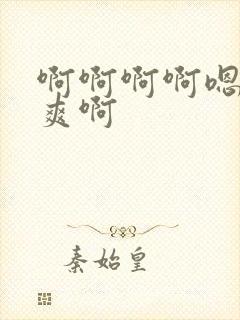 啊啊啊啊嗯
爽啊
秦始皇